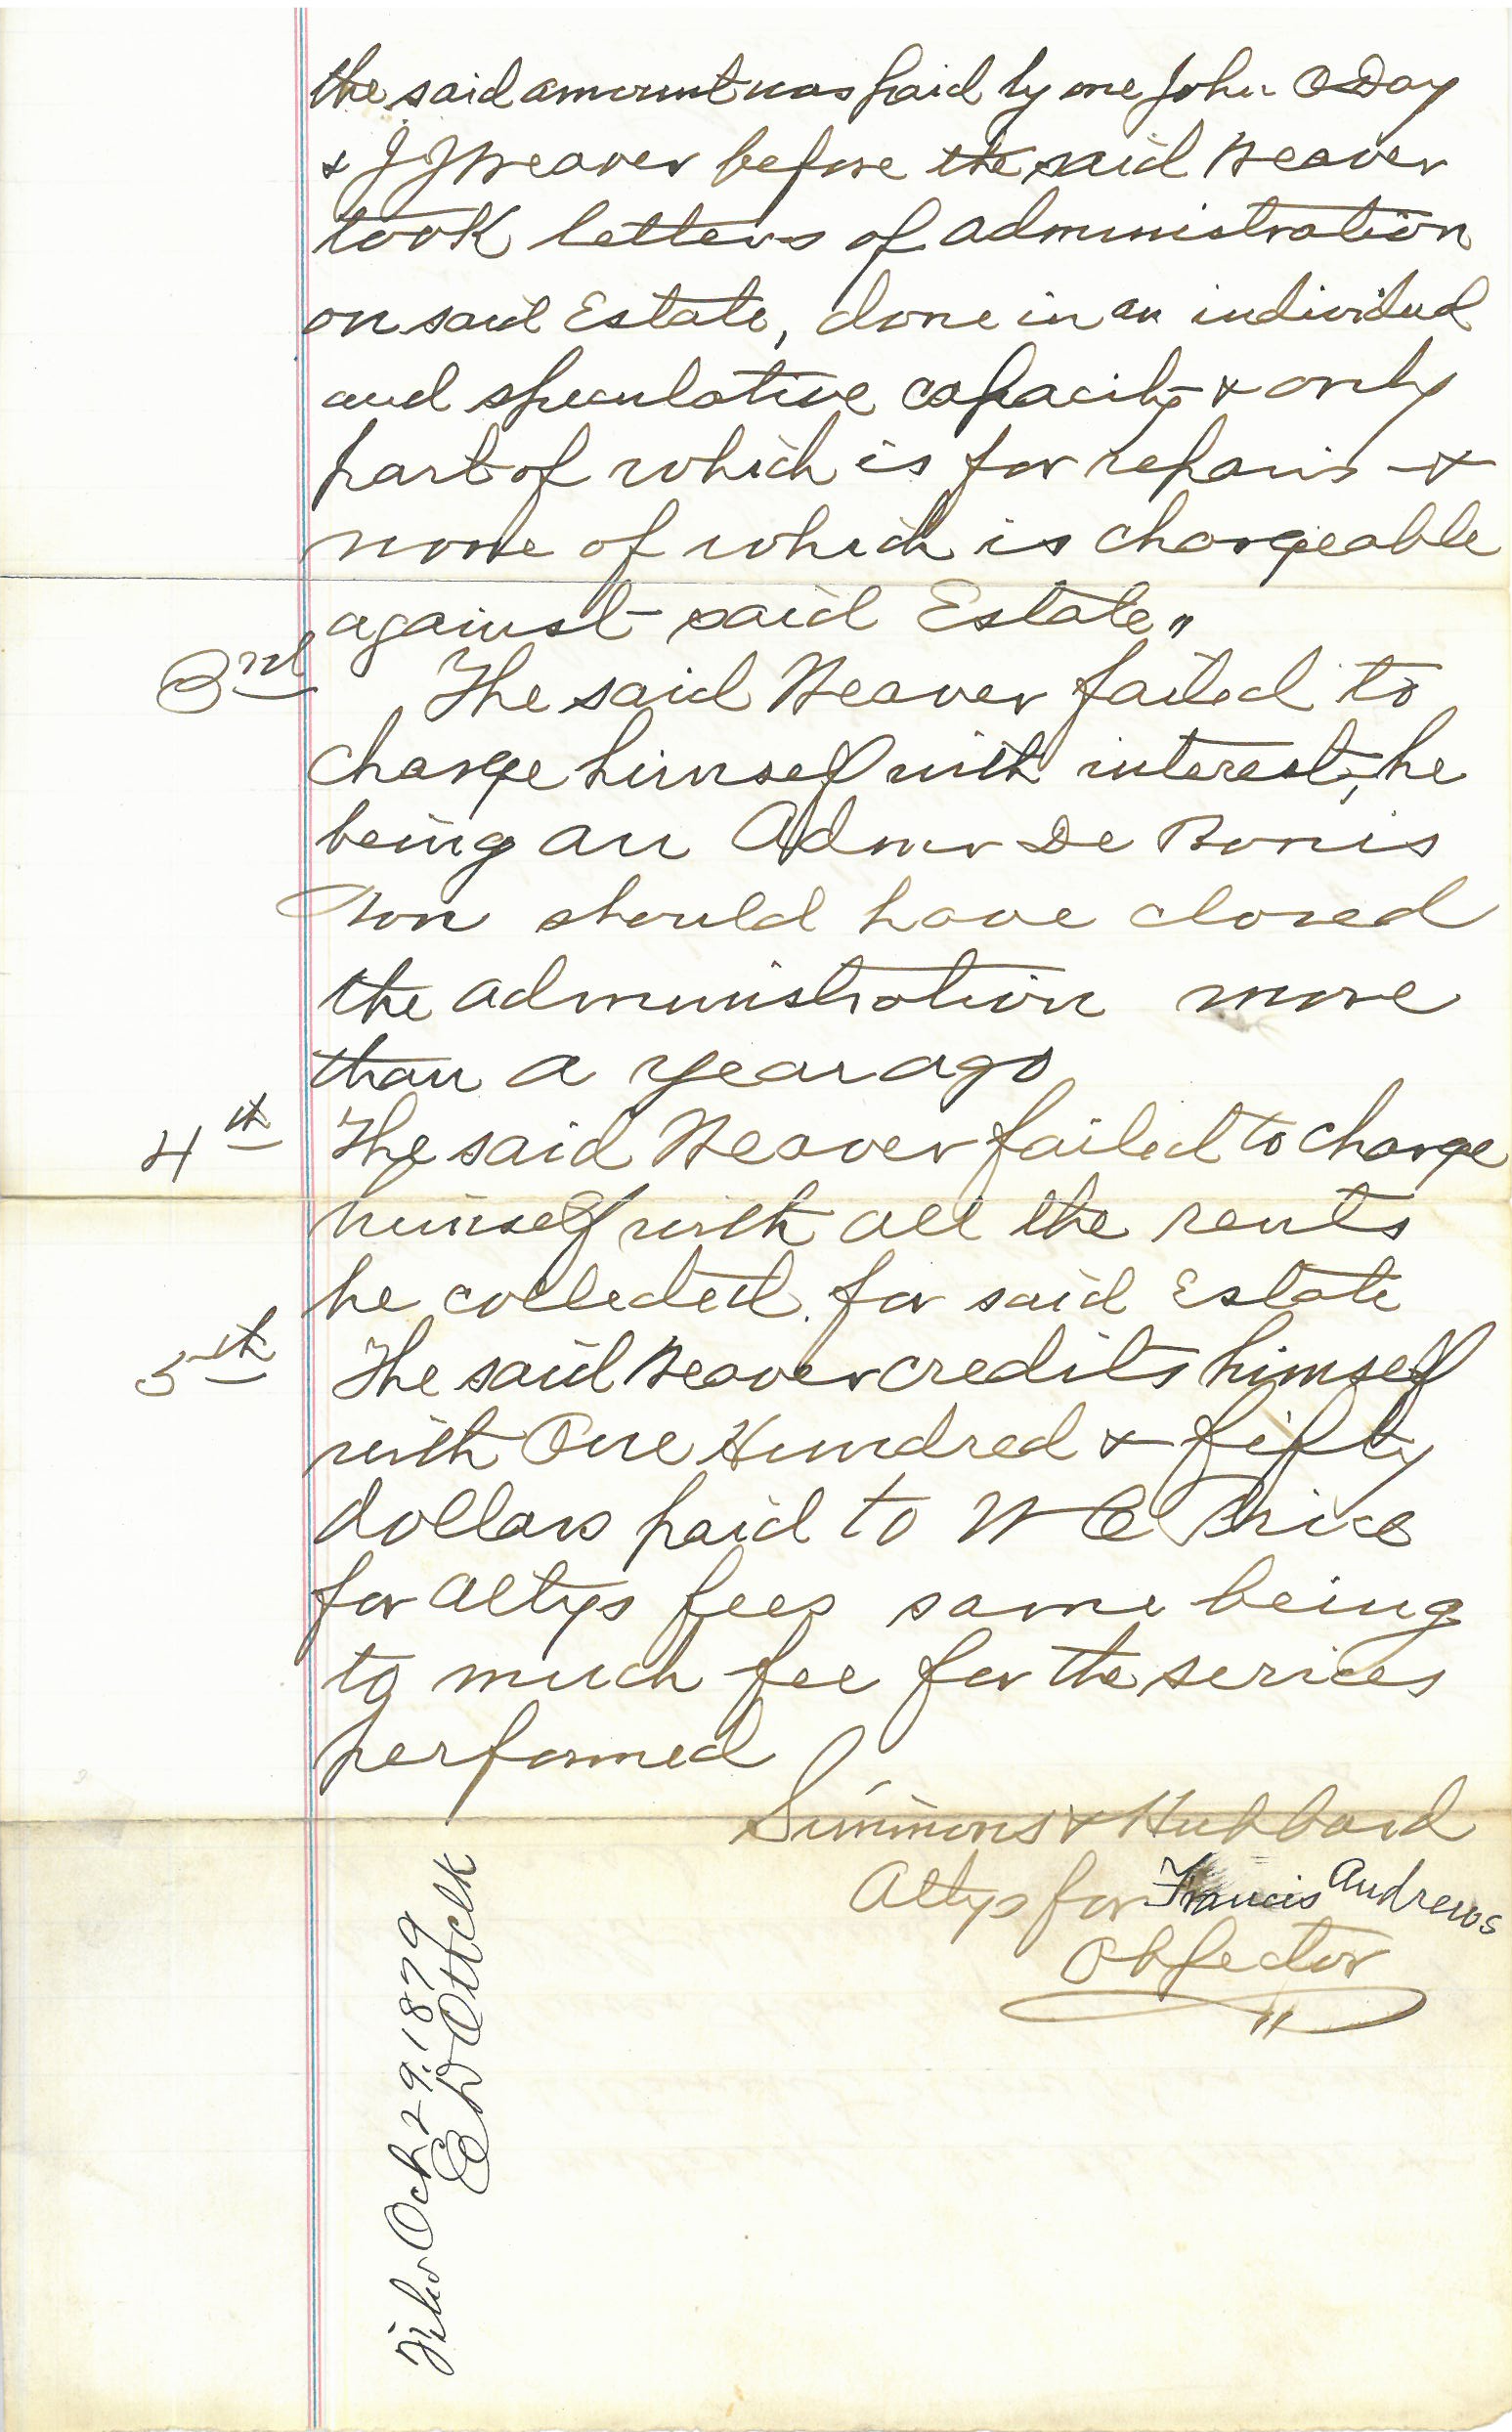 the said amount was paid by one John O Day
& J J Weaver before the said Weaver
took letters of administration
on said Estate, done in an individual
and speculative capacity & only
part of which is for repairs &
none of which is chargeable
against said Estate"
3rd The said Weaver failed to
charge himself with interest, he
being an Admr De Bonis
Non should have closed
the administration more
than a year ago
4th The said Weaver failed to charge
himself with all the rents
he collected for said Estate
5th The said Weaver credits himself
with One Hundred & fifty
dollars paid to W C Price
for Attys fees same being
to much fee for the serices
performed
Simmons & Hubbard
Attys for Francis Andrews
Objector
Filed Oct 29. 1879
E D Ott clk